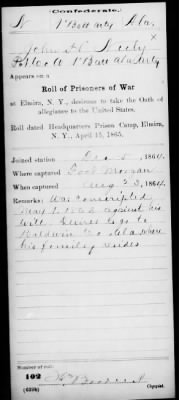 Confederate.
1 Batt Arty Ala.
John A. Neely
Appears on a
Roll of Prisoners of War
at Elmira, N. Y., desirous to take the Oath of
allegiance to the United States.
Roll dated Headquarters Prison Camp, Elmira,
N. Y., April 15, 1865.
Joined station Dec 5, 1864.
Where captured Fort Morgan
When captured Aug 23, 1864.
Remarks: Was conscripted
May 1 against his
will. Desires to go to
Baldwin Co Ala. where
his family resides
Number of roll:
102
(639b) Copyist.